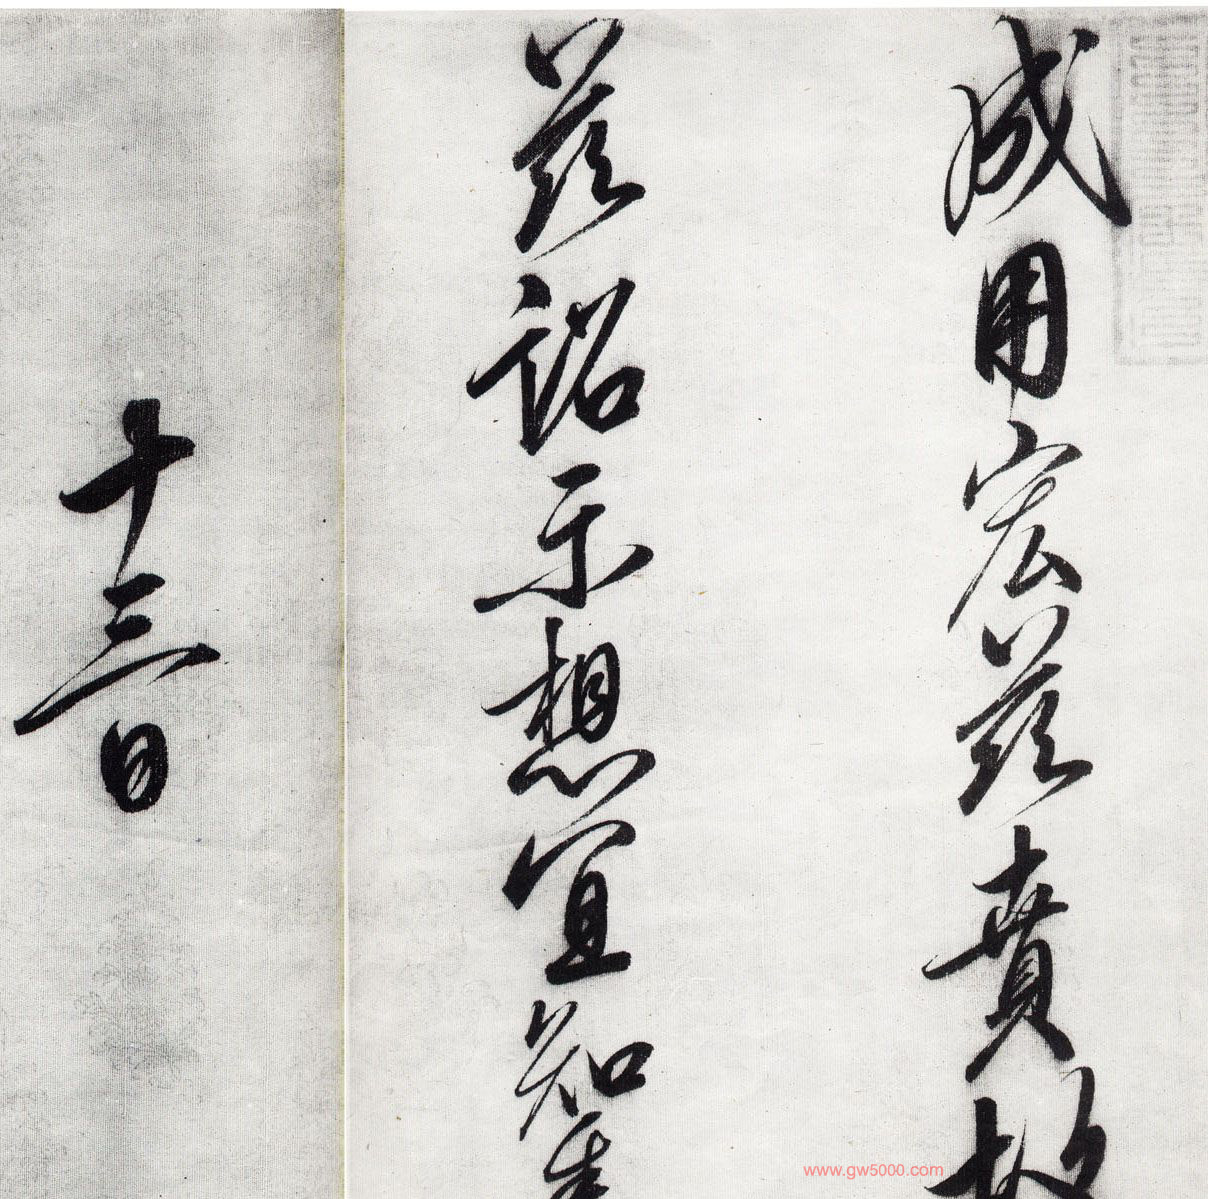 成用宏兹賁故
兹詔示想宜知悉
十三日
www.gw5000.com